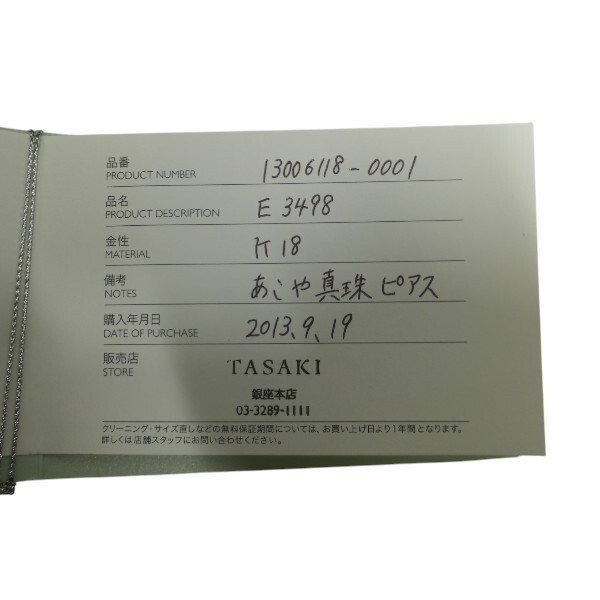 品番
PRODUCT NUMBER 13006118-0001
品名
PRODUCT DESCRIPTION E 3498
金性
MATERIAL K18
備考
NOTES あこや真珠ピアス
購入年月日
DATE OF PURCHASE 2013.9.19
販売店
STORE TASAKI
銀座本店
03-3289-1111
クリーニング・サイズ直しなどの無料保証期間については、お買い上げ日より1年間となります。
詳しくは店舗スタッフにお問い合わせください。